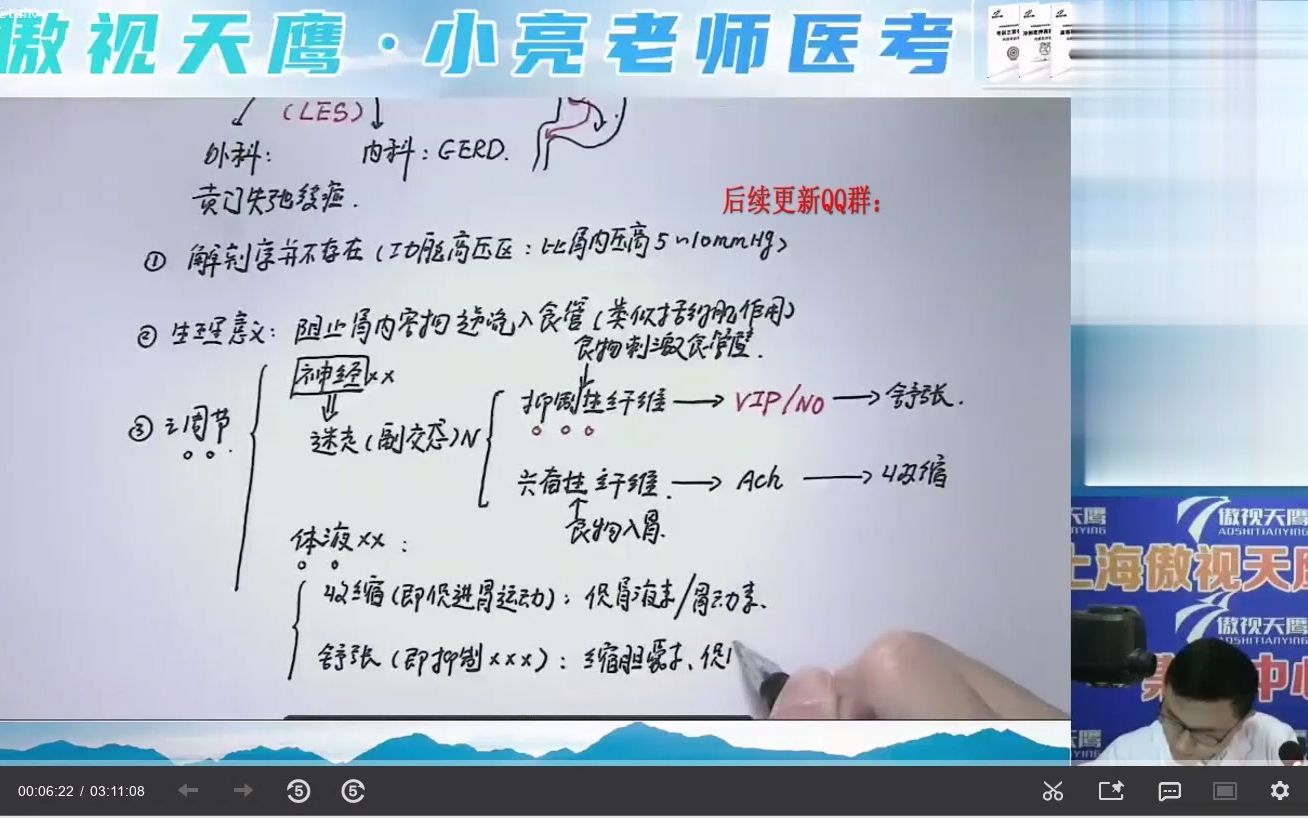 傲视天鹰·小亮老师医考
(LES)
外科:
内科:GERD.
贲门失弛缓症.
后续更新QQ群:
① 解剖学并不存在(功能高压区:比胃内压高5~10mmHg)
② 生理意义:阻止胃内容物逆流入食管(类似括约肌作用)
食物刺激食管壁.
神经xx
抑制性纤维→VIP/NO→舒张.
③ 调节
迷走(副交感)N
兴奋性纤维.→Ach→收缩
食物入胃.
体液xx:
收缩(即促进胃运动):促胃液素/胃动素.
舒张(即抑制xxx):缩胆囊素、促
傲视天鹰
AOSHITIANYING
上海傲视天鹰
傲视天鹰
AOSHITIANYING
中心
00:06:22 / 03:11:08
5
5